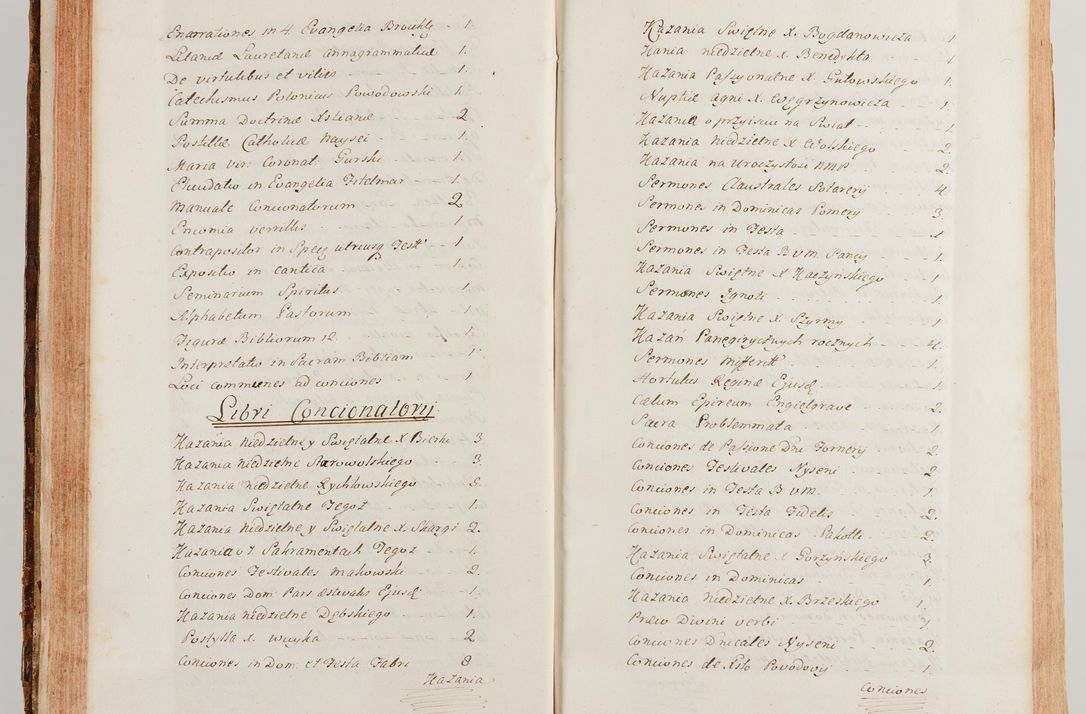 Enarrationes in 4 Evangelia Broickly - 1.
Litaniæ Lauretanæ annagrammatice 1.
De virtutibus et vitiis - - - 1.
Catechismus Polonicus Powodowski - 1.
Summa Doctrinæ Xstianæ - - 2
Postillæ Catholicæ Naysei - - - 1.
Maria vir: Coronat: Gurski - - 1.
Elucidatio in Evangelia Titelmar - - 1.
Manuale Concionatorum - - 2
Encomia verrillis - - - 1
Contrapositor in Specz utriusq Testt - 1
Expositio in cantica - - - 1.
Seminarium Spiritus - - - 1
Alphabetum Pastorum - - - 1
Figuræ Bibliorum 12. - - - 1
Interpretatio in Sacram Bibliam - 1
Loci communes ad conciones - - 1
Libri Concionatorij
Kazania niedzielne y Swiętalne X Bierki - 3
Kazania Niedzielne Starowolskiego - - 3.
Kazania niedzielne Rychłowskiego - -
Kazania Swiętalne Tegoż - - 1.
Kazania Niedzielne y Swiętalne X. Skargi 2.
Kazania o 7. Sakramentach Tegoż - - 1.
Conciones Festivales Makowski - - 2.
Conciones Dom: Pars æstivalis Ejusd - 1.
Kazania niedzielne Dębskiego - - 1.
Postylla X. Wuyka - - - 2
Conciones in Dom: et Festa Fabri - 8
Kazania
Kazania Swiętne X. Bogdanowicza - 1
Kania niedzielne X. Benedykta - - 1.
Kazania Passyonalne X. Gutowskiego - 1.
Nuptiæ Agni X. Węgrzynowicza - - 1.
Kazania o przyisciu na Swiat - - - 1.
Kazania Niedzielne X Wolskiego - - 2.
Kazania na Uroczystosi NMP - - 2.
Sermones Claustrales Sotarerij - - 4
Sermones in Dominicas Pomerij - - 3.
Sermones in Festa - - - 1
Sermones in Festa B.V.M. Pancy - - 1
Kazania Swiętne X Kaczyńskiego - - 1
Sermones Ignoti - - - 1.
Kazania Swiętne X. Szyrmy - - 1
Kazań Panegirycznych rocznych - - 4.
Sermones Mifferitt - - - 1.
Hortulus Reginæ Ejusd - - 1.
Cælum Epireum Engielgrave - - 2.
Sacra Problemmata - - - 1.
Conciones de Passione Dni Fornerij - 2
Conciones Festivales Nyseni - - 2
Conciones in Festa B.V.M. - - - 1.
Conciones in Festa Fidelis - - 2.
Conciones in Dominicas Pakolti - - 2.
Kazania Swiętalne X Gorzyńskiego - 3.
Conciones in Dominicas - - 1.
Kazania Niedzielne X. Brzeskiego - 1.
Præco Divini verbi - - - 1
Conciones Dnicales Nyseni - - 2
Conciones de Xsto Povodovij - - 1.
Conciones